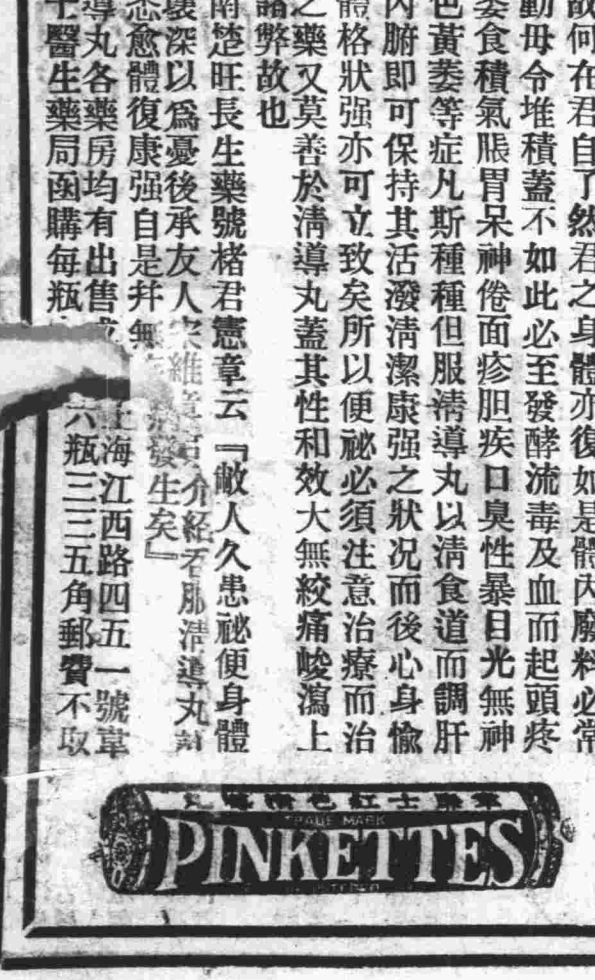 故何在君自了然君之身體亦復如是體内廢料必常
動毋令堆積蓋不如此必至發酵流毒及血而起頭疼
食積氣脹胃呆神倦面疹胆疾口臭性暴目光無神
色黃萎等症凡斯種種但服清導丸以清食道而調肝
内腑即可保持其活潑清潔康强之狀况而後心身愉
體格狀强亦可立致矣所以便祕必須注意治療而治
之藥又莫善於清導丸蓋其性和效大無絞痛峻瀉上
諸弊故也
南楚旺長生藥號楮君憲章云『敝人久患祕便身體
深以爲憂後承友人宋維介紹服清導丸
恙愈體復康强自是幷無發生矣』
導丸各藥房均有出售上海江西路四五一號韋
士醫生藥局函購每瓶六瓶三三五角郵費不取
TRADE MARK
PINKETTES